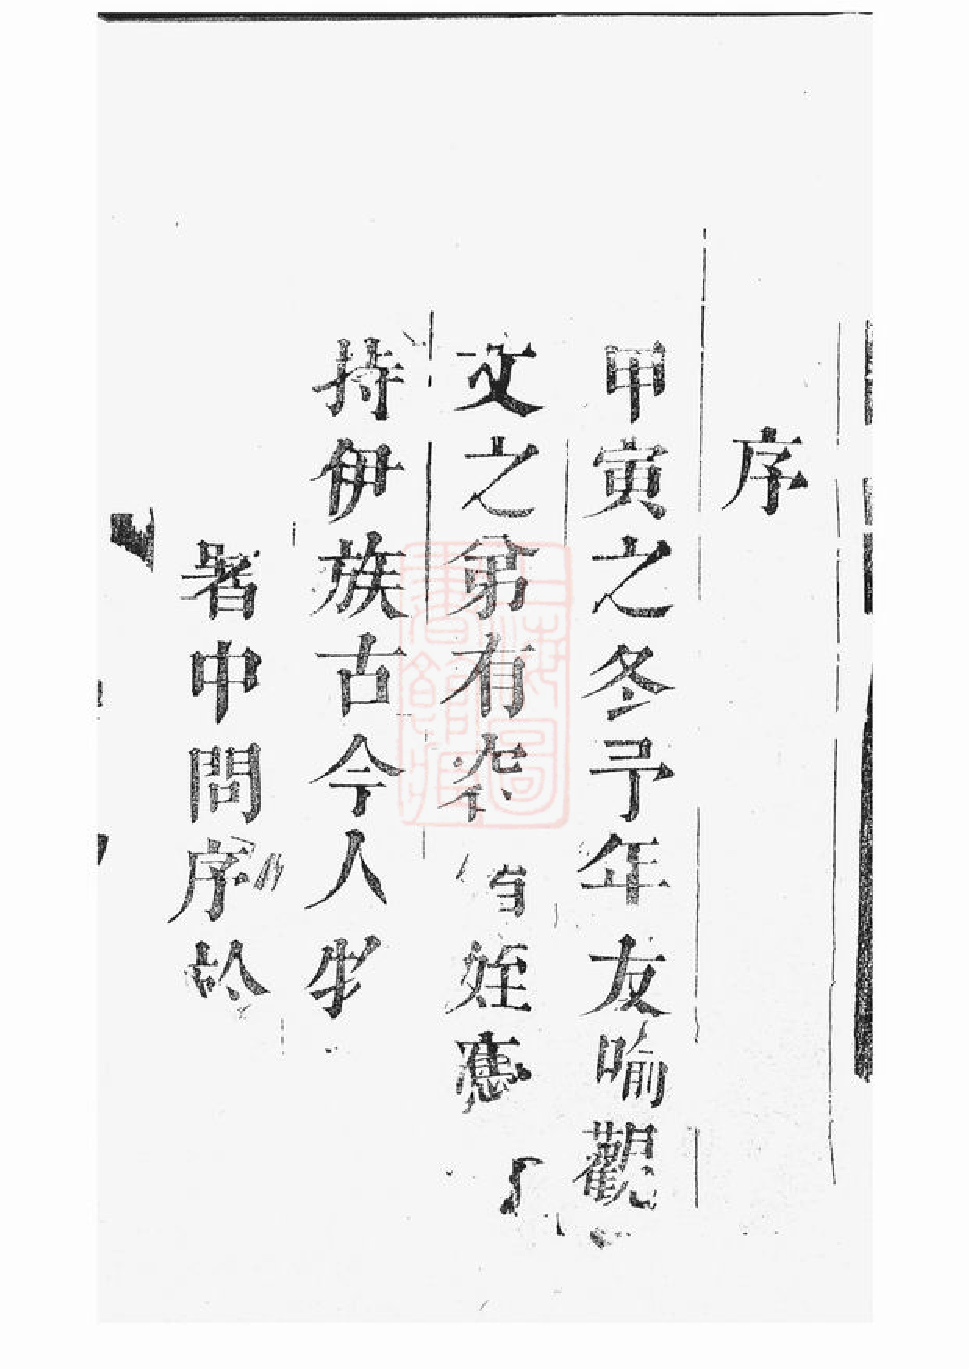 序
甲寅之冬予年友喻觀
文之弟有 姪應
持伊族古今人物
署中問序於